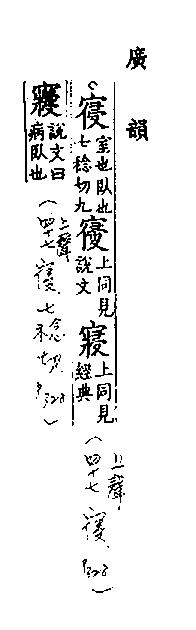 廣韻
寑室也臥也七稔切九𡪢上同見說文寢上同見經典（上聲 四十七寑 P328）
㝲說文曰病臥也（上聲 四十七寑 七稔切 P328）